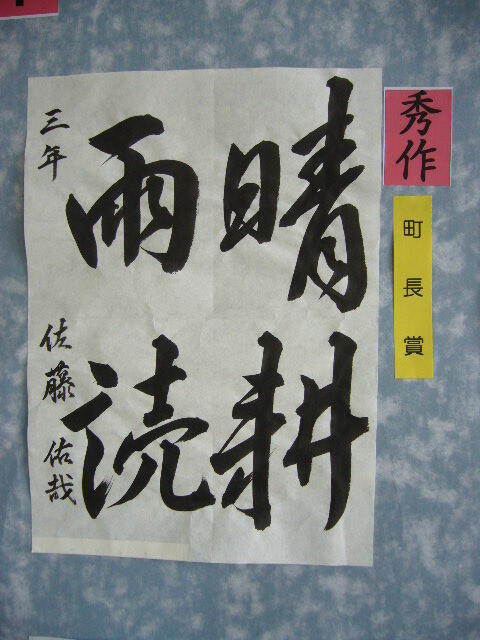 秀作
町長賞
晴耕
雨読
三年 佐藤佑哉